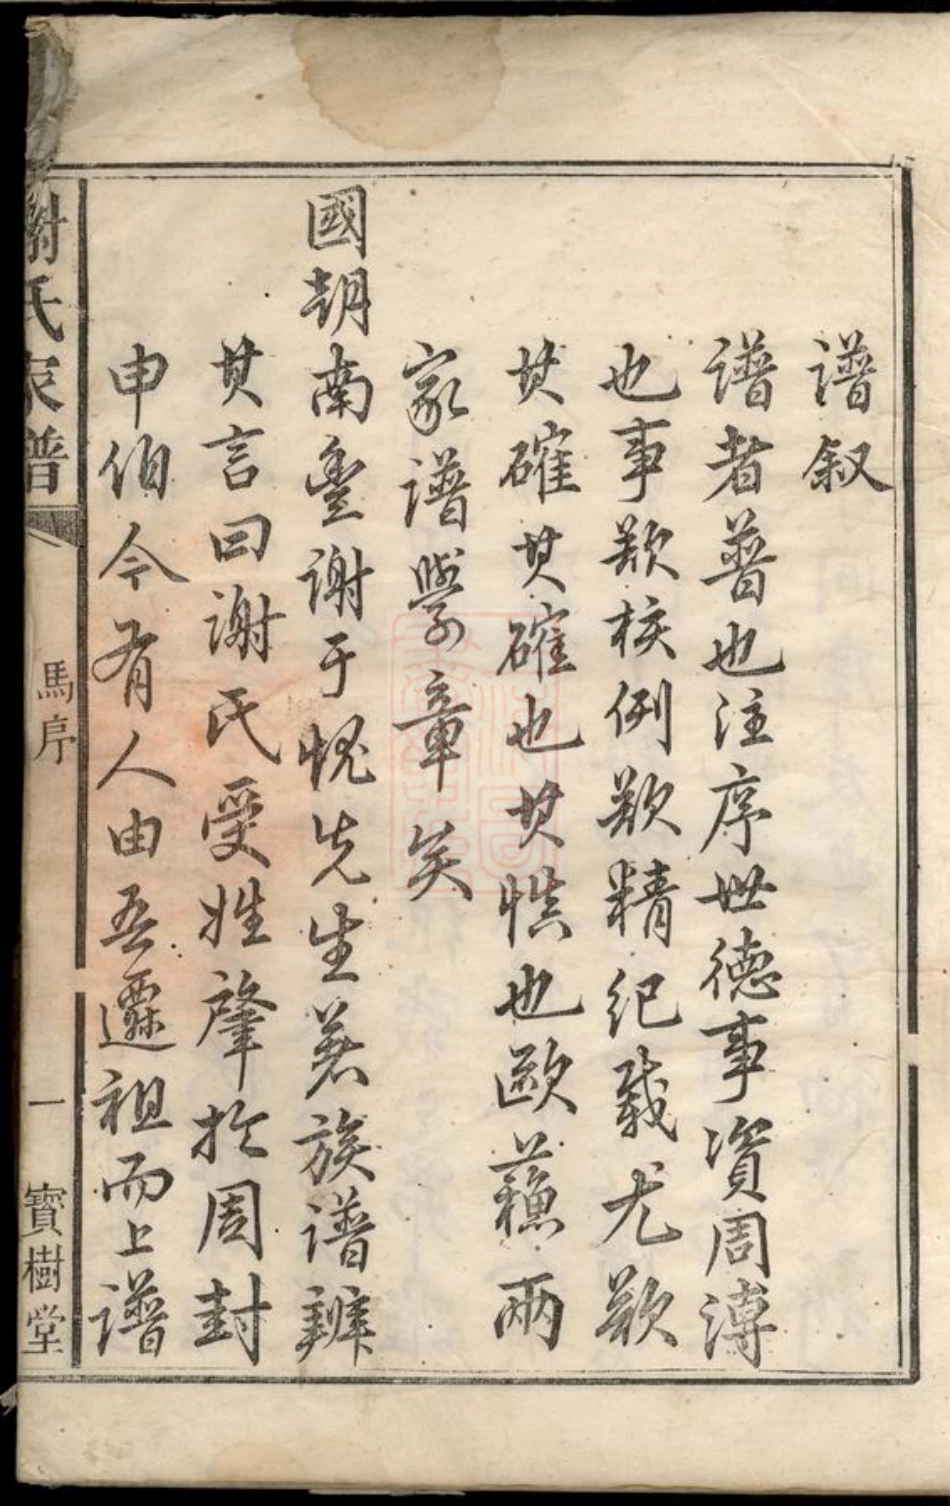 譜叙
譜者普也注序世德事資周溥
也事欵核例欵精紀載尤欵
其確其確也其慎也歐蘇兩
家譜學章矣
國朝南豐謝于愧先生著族譜辨
其言曰謝氏受姓肇於周封
申伯今有人由吾遷祖而上譜
謝氏家譜
馬序
一
寶樹堂